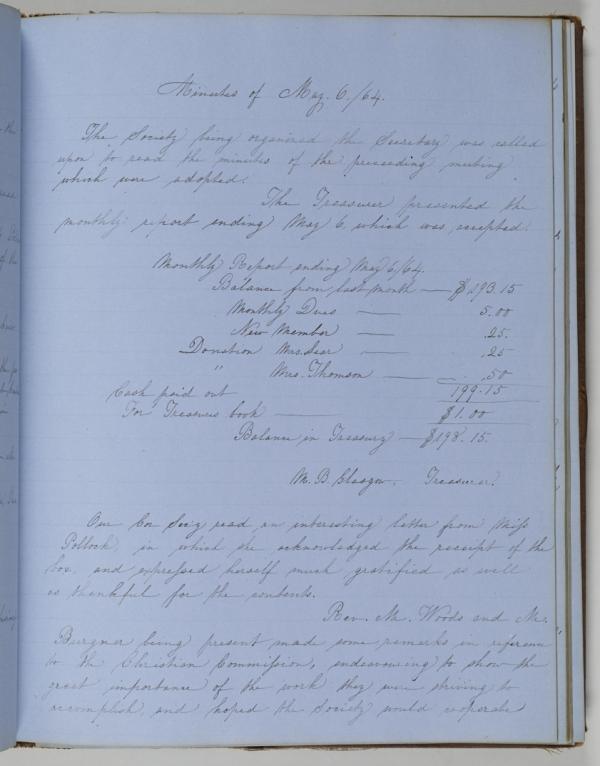 Minutes of May. 6./64.
The Society being organized the Secretary was called
upon to read the minutes of the preceeding meeting
which were adopted.
The Treasurer presented the
monthly report ending May 6, which was accepted.
Monthly Report ending May 6/64.
Balance from last month — $193.15
Monthly Dues — 5.00
New Member — .25.
Donation Mrs. — .25
" Mrs. Thomson — .50
199.15
Cash paid out
For Treasurers book — $1.00
Balance in Treasury — $198.15.
M. B. Glasgow. Treasurer.
Our Cor Sec'y read an interesting letter from Miss
Pollock, in which she acknowledged the receipt of the
box, and expressed herself much gratified as well
as thankful for the contents.
Rev. Mr. Woods and Mr.
Burgner being present made some remarks in reference
to the Christian Commission, endeavouring to show the
great importance of the work they were striving to
accomplish, and hoped the Society would cooperate